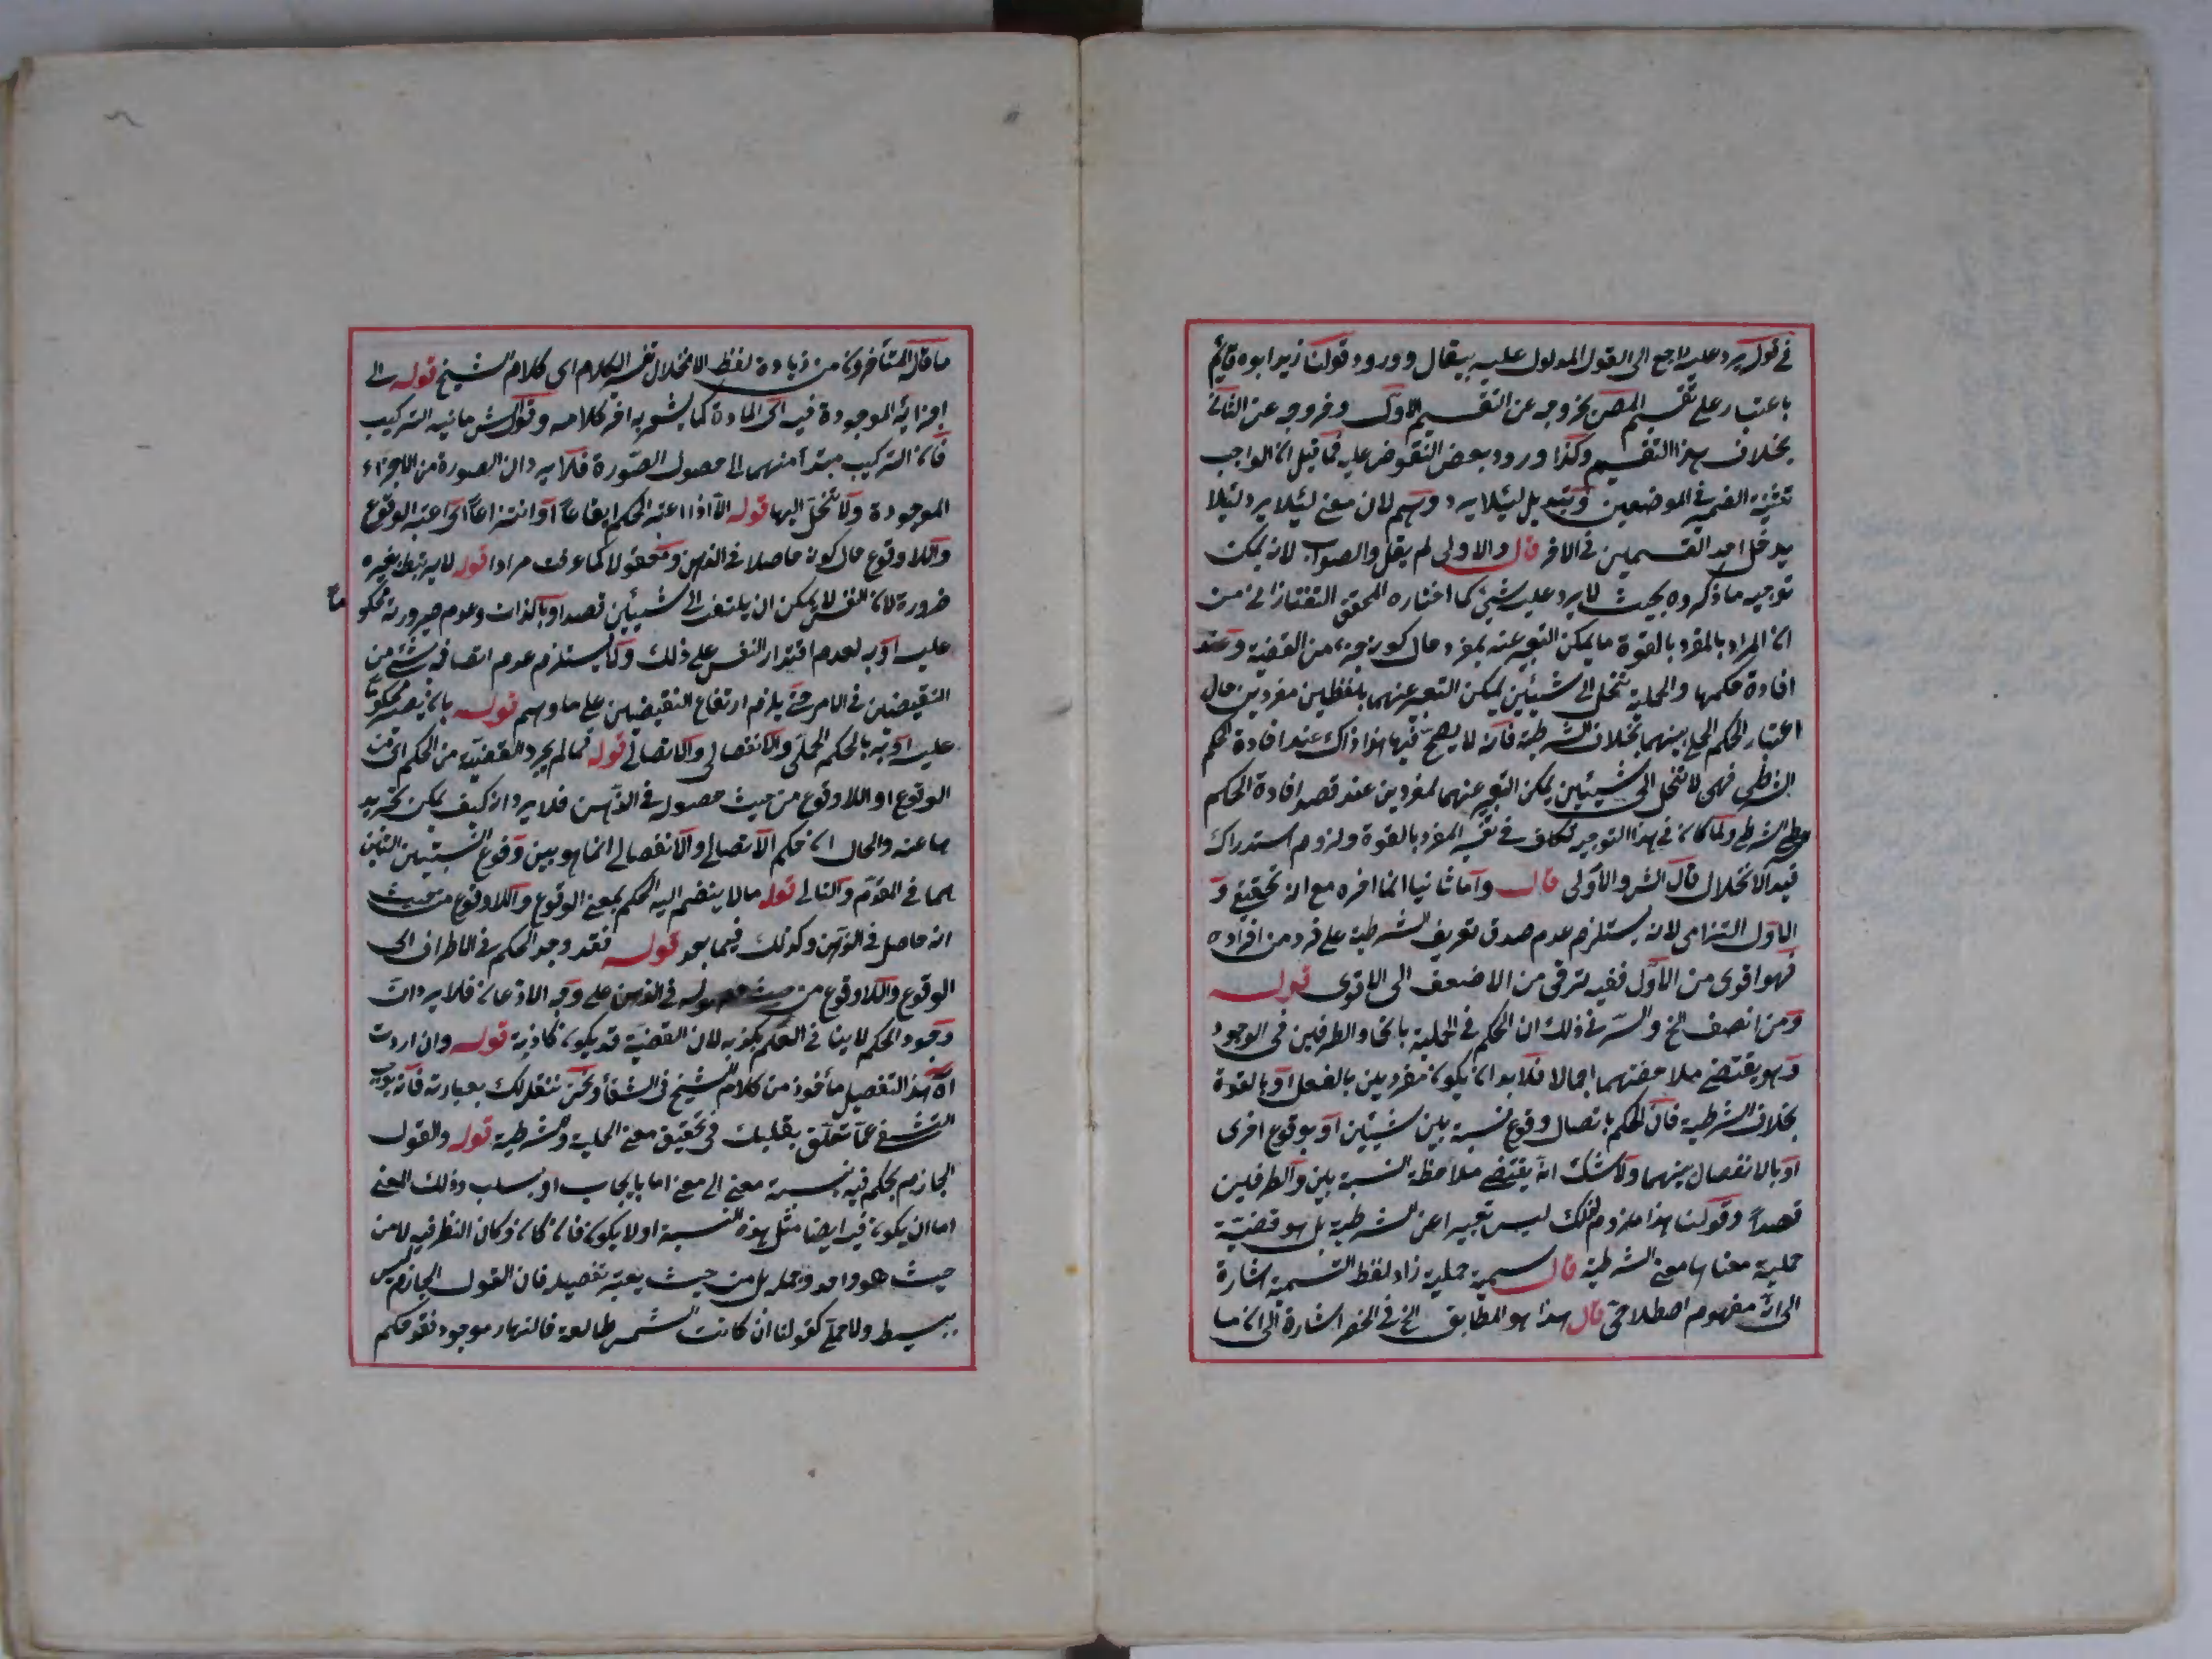 في قوله يرد عليه راجع الى القول المدلول عليه بيقال وورود قولنا زيد ابوه قائم
باعتبار على تقسيم المص بخروجه عن التقسيم الاول وخروجه عن الثاني
بخلاف هذا التقسيم وكذا ورود بعض النقوض عليه فما قيل ان الواجب
تثنية الضمير في الموضعين وتبديل لئلا يرد وهم لان معنى لئلا يرد لئلا
يدخل احد القسمين في الاخر قال والاولى لم يقل والصواب لانه يمكن
توجيه ما ذكروه بحيث لا يرد عليه شئ كما اختاره المحقق التفتازاني من
ان المراد بالمفرد بالقوة ما يمكن التعبير عنه بمفرد حال كونه جزء من القضية وعند
افادة حكمها والحملية تنحل الى شيئين يمكن التعبير عنهما بلفظين مفردين حال
اعتبار الحكم الحملي بينهما بخلاف الشرطية فانه لا يصح فيها هذا ذاك عند افادة الحكم
الشرطي فهي لا تنحل الى شيئين يمكن التعبير عنهما بمفردين عند قصد افادة الحكم
الشرطي ولما كان في هذا التوجيه تكلف في تفسير المفرد بالقوة ولزوم استدراك
قيد الانحلال قال الش والاولى قال واما ثانيا انما اخره مع انه تحقيقي و
الاول التزامي لانه يستلزم عدم صدق تعريف الشرطية على فرد من افراده
فهو اقوى من الاول ففيه ترقى من الاضعف الى الاقوى قوله
ومن انصف الخ والسر في ذلك ان الحكم في الحملية باتحاد الطرفين في الوجود
وهو يقتضي ملاحظتهما اجمالا فلا بد ان يكون مفردين بالفعل او بالقوة
بخلاف الشرطية فان الحكم باتصال وقوع نسبة بين شيئين او بوقوع اخرى
او بالانفصال بينهما ولا شك انه يقتضي ملاحظة النسبة بين والطرفين
قصدا وقولنا هذا ملزوم لذلك ليس تعبيرا عن الشرطية بل هو قضية
حملية معناها معنى الشرطية قال سميت حملية زاد لفظ التسمية اشارة
الى انه مفهوم اصطلاحي قال هذا هو المطابق الخ في الحصر اشارة الى ان ما
ما قال المتأخرون من زيادة لفظ الانحلال تفسير الكلام اى كلام الشيخ قوله الى
اجزائه الموجودة فيه اى المادة كما يشعر به اخر كلامه وقول الش ما فيه التركيب
فان التركيب مبتدأ منهما الى حصول الصورة فلا يرد ان الصورة من الاجزاء
الموجودة ولا تنحل اليها قوله الا اذا اعتبر الحكم ايقاعا او انتزاعا اى اعتبر الوقوع
واللاوقوع حال كونه حاصلا في الذهن ومعقولا كما عرفت مرادا قوله لا يرتبط بغيره
ضرورة لان النفس لا يمكن ان يلتفت الى شيئين قصدا وبالذات وعدم صيرورته محكو
ما
عليه او به لعدم اقتدار النفس على ذلك ولا يستلزم عدم اتصافه بشئ من
النقيضين في الامر حتى يلزم ارتفاع النقيضين على ما وهم قوله بان يصير محكوما
عليه او به بالحكم الحملي والانفصالي والاتصالي قوله فما لم يجرد القضية من الحكم اى من
الوقوع او اللاوقوع من حيث حصوله في الذهن فلا يرد انه كيف يمكن تجريد
ها عنه والحال ان حكم الاتصالي والانفصالي انما هو بين وقوع النسبتين اللتين
هما في المقدم والتالي قوله ما لا ينضم اليه الحكم بمعنى الوقوع واللاوقوع من حيث
انه حاصل في الذهن وكذلك فيما بعد قوله فقد وجد الحكم في الاطراف اى
الوقوع واللاوقوع من حيث حصوله في الذهن على وجه الاذعان فلا يرد ان
وجود الحكم لا ينافي العلم بكذبه لان القضية قد يكون كاذبة قوله وان اردت
اه هذا التفصيل مأخوذ من كلام الشيخ في الشفأ ونحن ننقل لك بعبارته فانه يوجب
التشفى عما تعلق بقلبك في تحقيق معنى الحملية والشرطية قوله والقول
الجازم يحكم فيه بنسبة معنى الى معنى اما بايجاب او بسلب وذلك المعنى
اما ان يكون فيه ايضا مثل هذه النسبة او لا يكون فان كان وكان النظر فيه لا من
حيث هو واحد وجملة بل من حيث يعتبر تفصيله فان القول الجازم ليس
ببسيط ولا حملي كقولنا ان كانت الشمس طالعة فالنهار موجود فقولكم